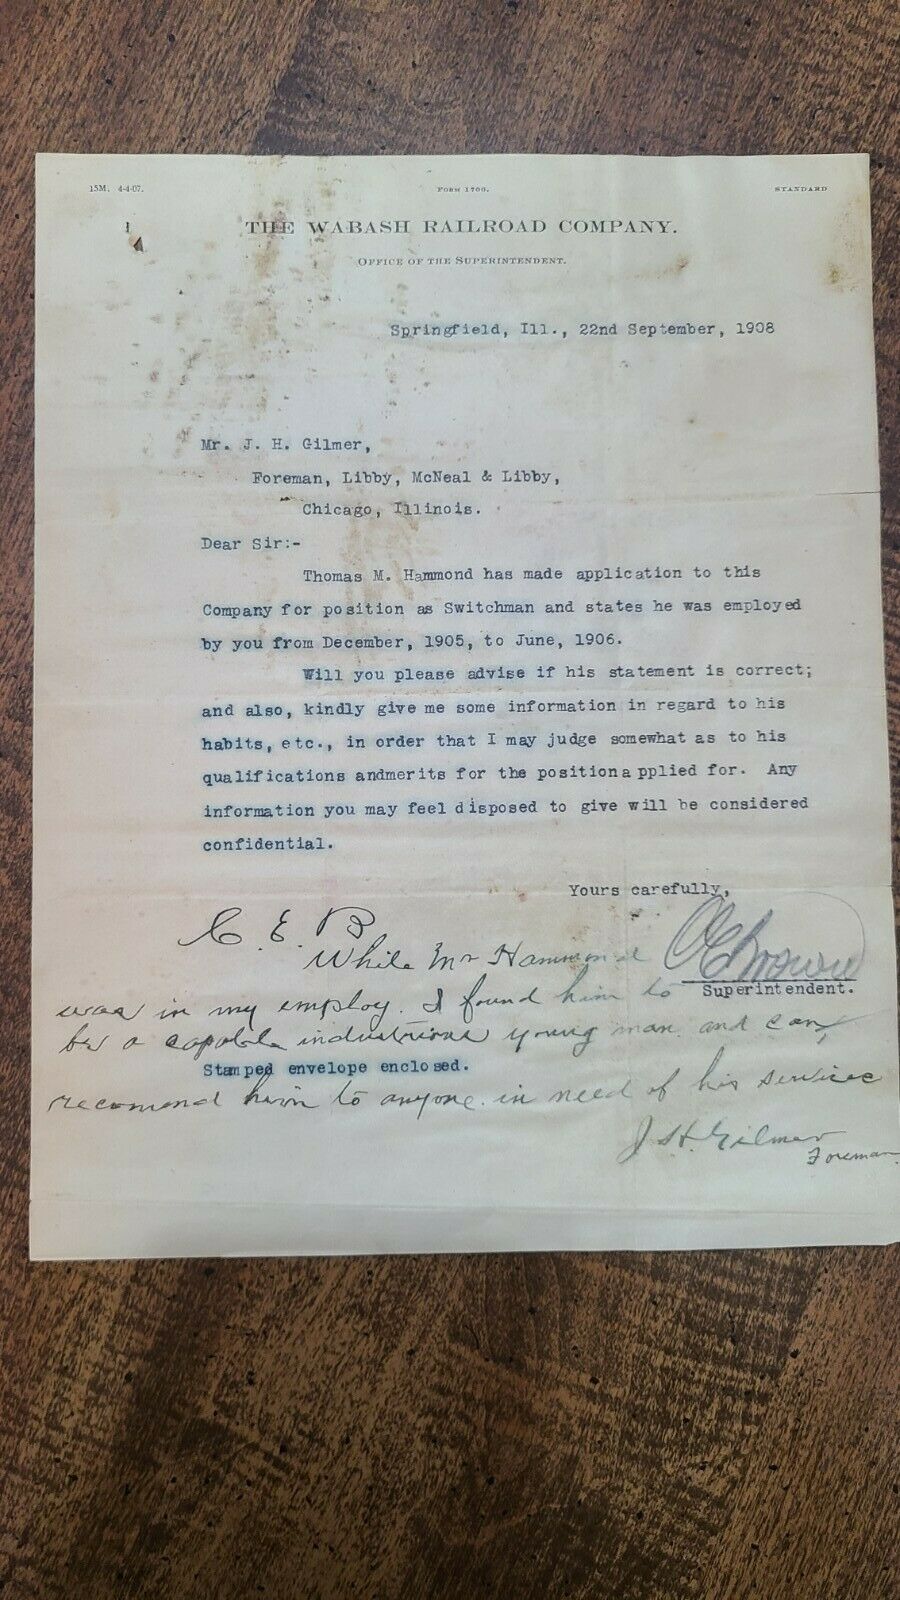 15M. 4-4-07.
FORM 1700.
STANDARD
THE WABASH RAILROAD COMPANY.
OFFICE OF THE SUPERINTENDENT.
Springfield, Ill., 22nd September, 1908
Mr. J. H. Gilmer,
Foreman, Libby, McNeal & Libby,
Chicago, Illinois.
Dear Sir:-
Thomas M. Hammond has made application to this
Company for position as Switchman and states he was employed
by you from December, 1905, to June, 1906.
Will you please advise if his statement is correct;
and also, kindly give me some information in regard to his
habits, etc., in order that I may judge somewhat as to his
qualifications andmerits for the positiona pplied for. Any
information you may feel disposed to give will be considered
confidential.
Yours carefully,
C. E. B
While Mr Hammond
Superintendent.
was in my employ. I found him to
be a capable industrious young man and can
Stamped envelope enclosed.
recomend him to anyone in need of his services
J. H. Gilmer
Foreman